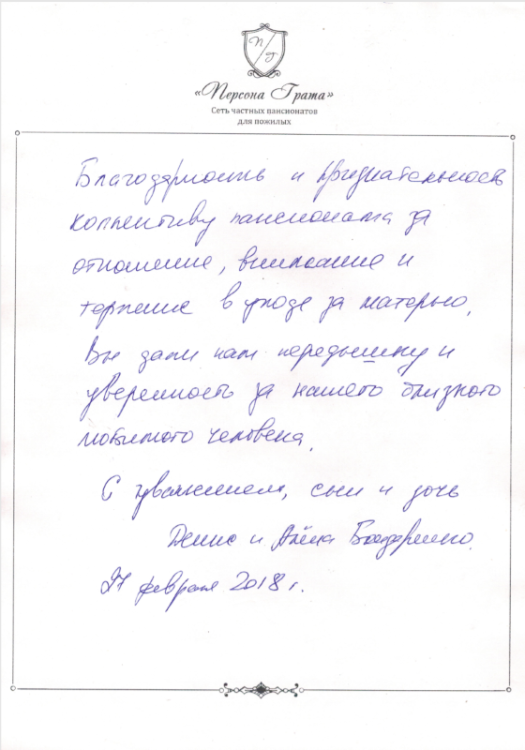 П Г
«Персона Грата»
Сеть частных пансионатов
для пожилых
Благодарность и признательность
коллективу пансионата за
отношение, внимание и
терпение в уходе за матерью.
Вы дали нам передышку и
уверенность за нашего близкого
любимого человека.
С уважением, сын и дочь
Денис и Алёна
февраля 2018 г.